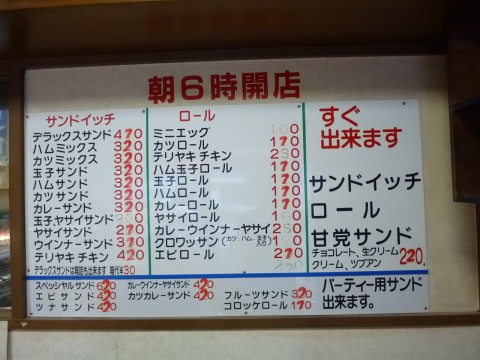 朝6時開店
サンドイッチ
デラックスサンド 470
ハムミックス 320
カツミックス 320
玉子サンド 320
ハムサンド 320
カツサンド 320
カレーサンド 320
玉子、ヤサイサンド
ヤサイサンド 270
ウインナーサンド 370
テリヤキチキン 420
デラックスサンドは箱詰も出来ます 箱代¥30
ロール
ミニエッグ
カツロール 170
テリヤキチキン
ハム玉子ロール 170
玉子ロール 170
ハムロール 170
カレーロール 170
ヤサイロール
カレーウインナーヤサイ
クロワッサン
エビロール 270
すぐ
出来ます
サンドイッチ
ロール
甘党サンド
チョコレート、生クリーム
クリーム、ツブアン 220
スペッシャルサンド 620
エビサンド 420
ツナサンド 420
カレーウインナーヤサイサンド 420
カツカレーサンド 420
フルーツサンド 320
コロッケロール 170
パーティー用サンド
出来ます。